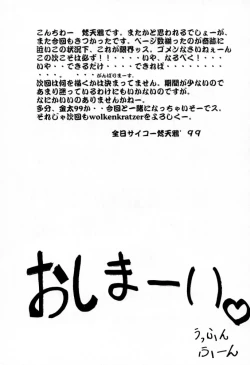 こんちわー 梵天雅です。またかと思われるでしょーが、
また今回もきつかったです。ページ数減ったのが奇跡に
近いこの状況下、これが限界ッス、ゴメンなさいねぇーん
この次こそは必ず!!・・・・いや、なるべく!・・・
いや・・できるだけ・・・・できれば・・・・・・・・
・・・・。・・・がんばりまーす。
次回は何を描くかは決まってません。期間が少ないので
あまり迷っているわけにもいかないのですが、
なにかいいのありませんかねー。
多分、金太99か・・今回と一緒になっちゃいそーでス。
それじゃ次回もwolkenkratzerをよろしくー。
全日サイコー梵天雅' 99
おしまーい♡
うっふん
ふーん